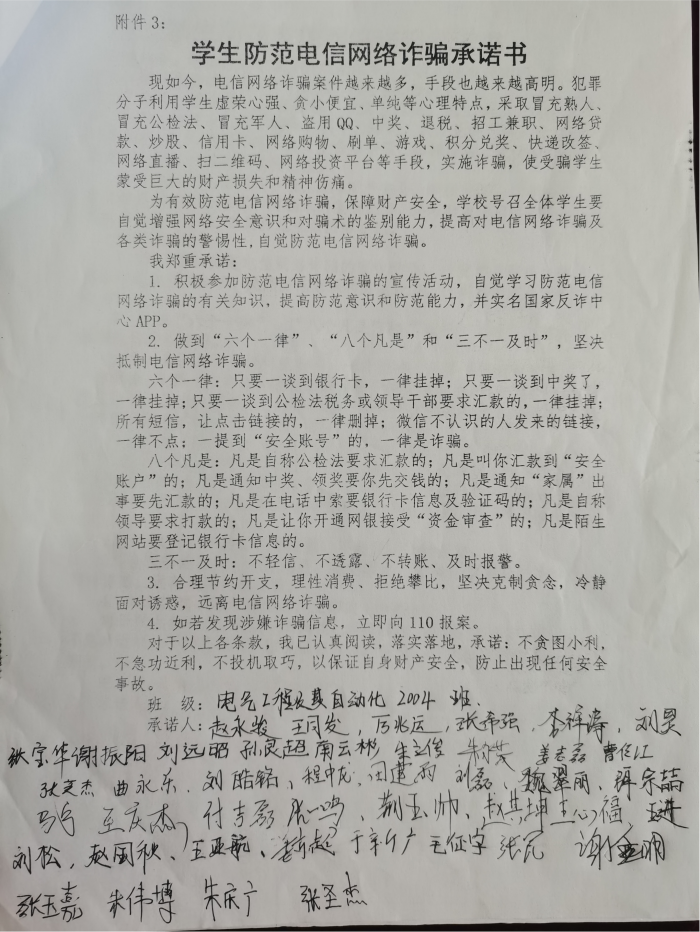 附件 3:
学生防范电信网络诈骗承诺书
现如今，电信网络诈骗案件越来越多，手段也越来越高明。犯罪
分子利用学生虚荣心强、贪小便宜、单纯等心理特点，采取冒充熟人、
冒充公检法、冒充军人、盗用QQ、中奖、退税、招工兼职、网络贷
款、炒股、信用卡、网络购物、刷单、游戏、积分兑奖、快递改签、
网络直播、扫二维码、网络投资平台等手段，实施诈骗，使受骗学生
蒙受巨大的财产损失和精神伤痛。
为有效防范电信网络诈骗，保障财产安全，学校号召全体学生要
自觉增强网络安全意识和对骗术的鉴别能力，提高对电信网络诈骗及
各类诈骗的警惕性,自觉防范电信网络诈骗。
我郑重承诺：
1. 积极参加防范电信网络诈骗的宣传活动，自觉学习防范电信
网络诈骗的有关知识，提高防范意识和防范能力，并实名国家反诈中
心APP。
2. 做到“六个一律”、“八个凡是”和“三不一及时”，坚决
抵制电信网络诈骗。
六个一律：只要一谈到银行卡，一律挂掉；只要一谈到中奖了，
一律挂掉；只要一谈到公检法税务或领导干部要求汇款的，一律挂掉；
所有短信，让点击链接的，一律删掉；微信不认识的人发来的链接，
一律不点；一提到“安全账号”的，一律是诈骗。
八个凡是：凡是自称公检法要求汇款的；凡是叫你汇款到“安全
账户”的；凡是通知中奖、领奖要你先交钱的；凡是通知“家属”出
事要先汇款的；凡是在电话中索要银行卡信息及验证码的；凡是自称
领导要求打款的；凡是让你开通网银接受“资金审查”的；凡是陌生
网站要登记银行卡信息的。
三不一及时：不轻信、不透露、不转账、及时报警。
3. 合理节约开支，理性消费、拒绝攀比，坚决克制贪念，冷静
面对诱惑，远离电信网络诈骗。
4. 如若发现涉嫌诈骗信息，立即向110报案。
对于以上各条款，我已认真阅读，落实落地，承诺：不贪图小利，
不急功近利，不投机取巧，以保证自身财产安全，防止出现任何安全
事故。
班 级：电气工程及其自动化 2004 班.
承诺人：赵永骏 王同发，厉兆运，张希强，李祥涛，刘昊
张宝华 谢振阳 刘远昭 孙良超 南云彬 朱立俊 姜志磊 曹佳江
张文杰 曲永东、刘皓铭，程中龙，刘磊、魏翠丽，
王庆杰，付吉磊 荆玉帅、赵其坤 王心福，
刘松，赵国秋、王亚航、于新广 毛征宇
张玉嘉 朱伟博 朱庆广 张圣杰